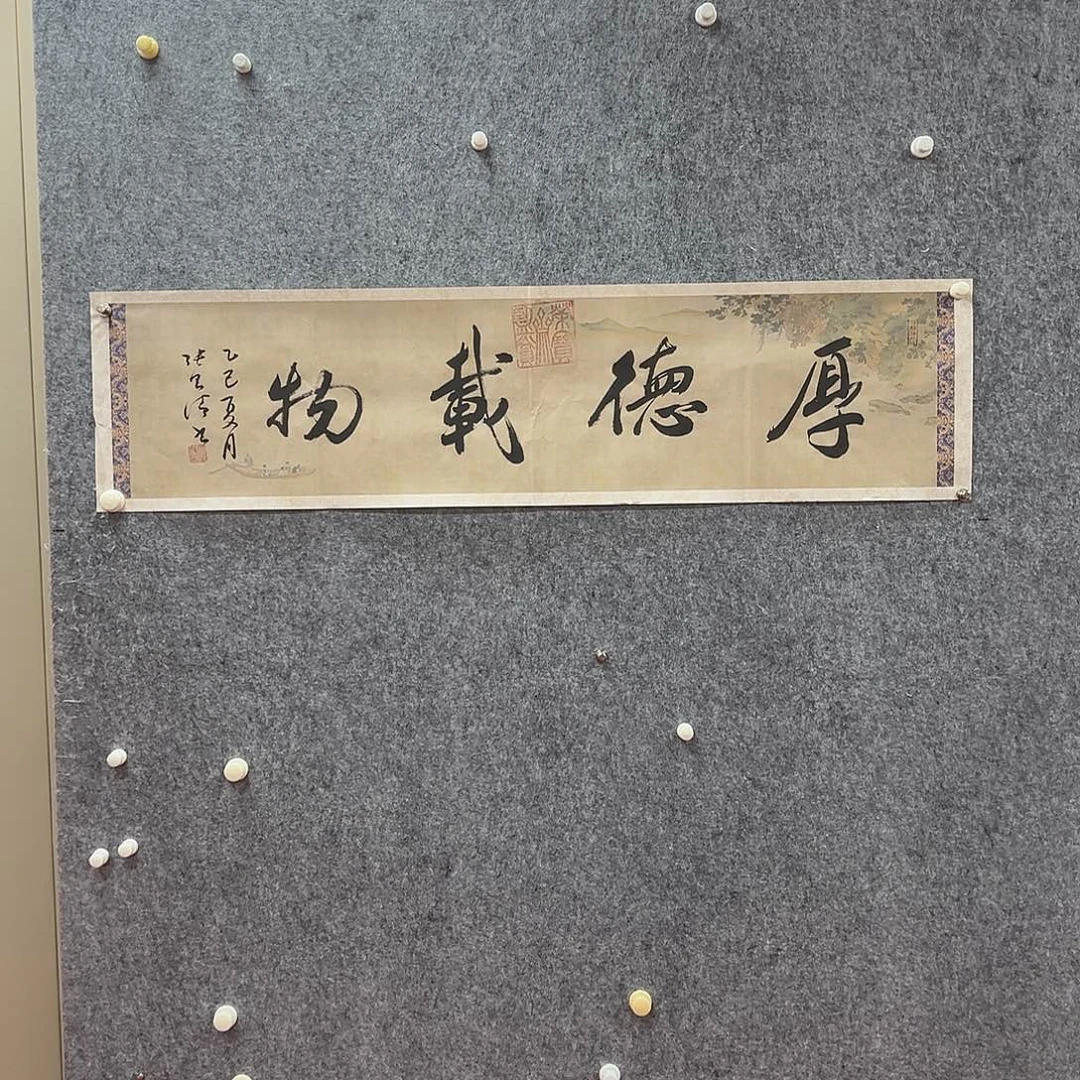 厚德載物
乙巳夏月